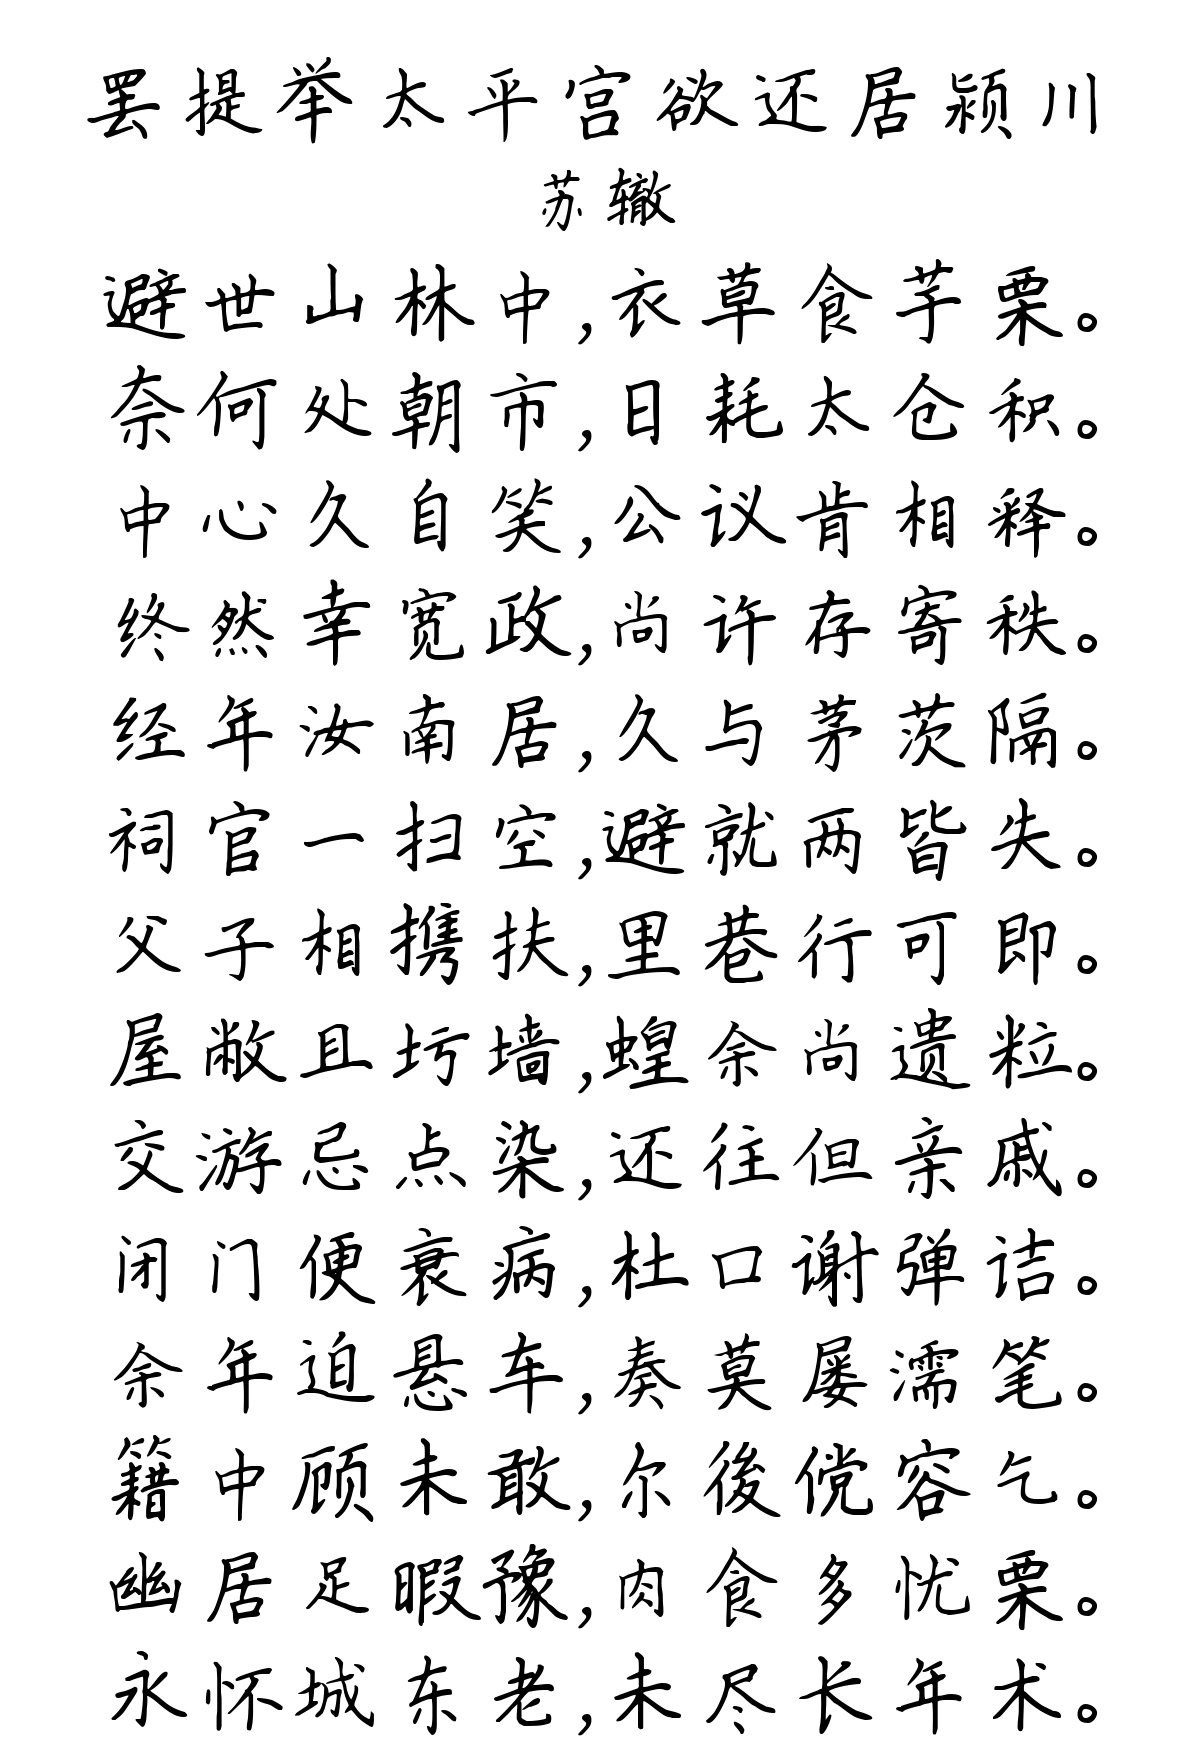 罢提举太平宫欲还居颍川
苏辙
避世山林中,衣草食芋栗。
奈何处朝市,日耗太仓积。
中心久自笑,公议肯相释。
终然幸宽政,尚许存寄秩。
经年汝南居,久与茅茨隔。
祠官一扫空,避就两皆失。
父子相携扶,里巷行可即。
屋敝且圬墙,蝗余尚遗粒。
交游忌点染,还往但亲戚。
闭门便衰病,杜口谢弹诘。
余年迫悬车,奏莫屡濡笔。
籍中顾未敢,尔後傥容乞。
幽居足暇豫,肉食多忧栗。
永怀城东老,未尽长年术。